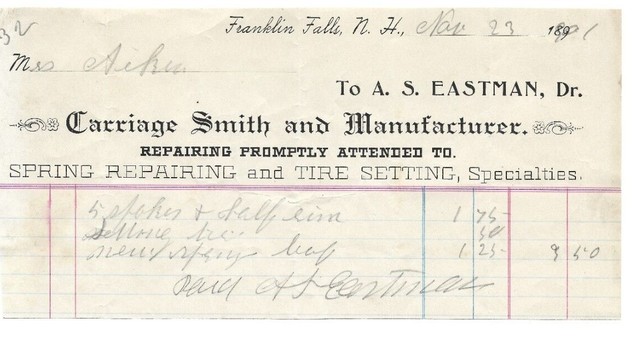 32
Franklin Falls, N. H., Nov 23 189
Mrs Aiken
To A. S. EASTMAN, Dr.
Carriage Smith and Manufacturer.
REPAIRING PROMPTLY ATTENDED TO.
SPRING REPAIRING and TIRE SETTING, Specialties.
5 spokes & half rim 1 75
setting tire 50
new spring 1 25 3 50
Paid A S Eastman